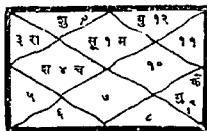 शु २ बु १२
३ रा सू १ म ११
श ४ च १०
के
५ ७ गु ९
६ ८